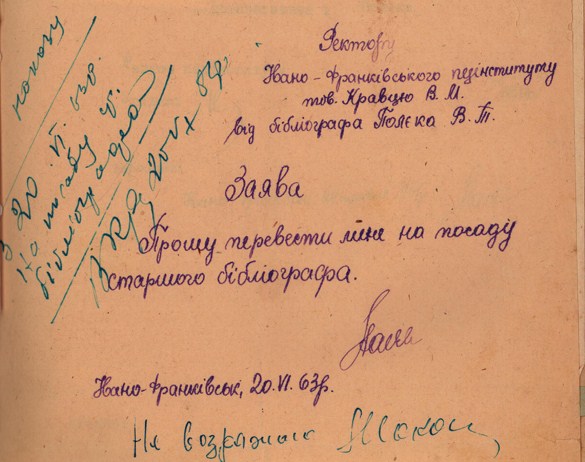 наказу
З 20 VI. 63р.
на посаду ст.
бібліографа
20/VI 63р
Ректору
Івано-Франківського педінституту
тов. Кравцю В. М.
від бібліографа Полєка В. Т.
Заява
Прошу перевести мене на посаду
старшого бібліографа.
Івано-Франківськ, 20.VI.63р.
Не возражаю